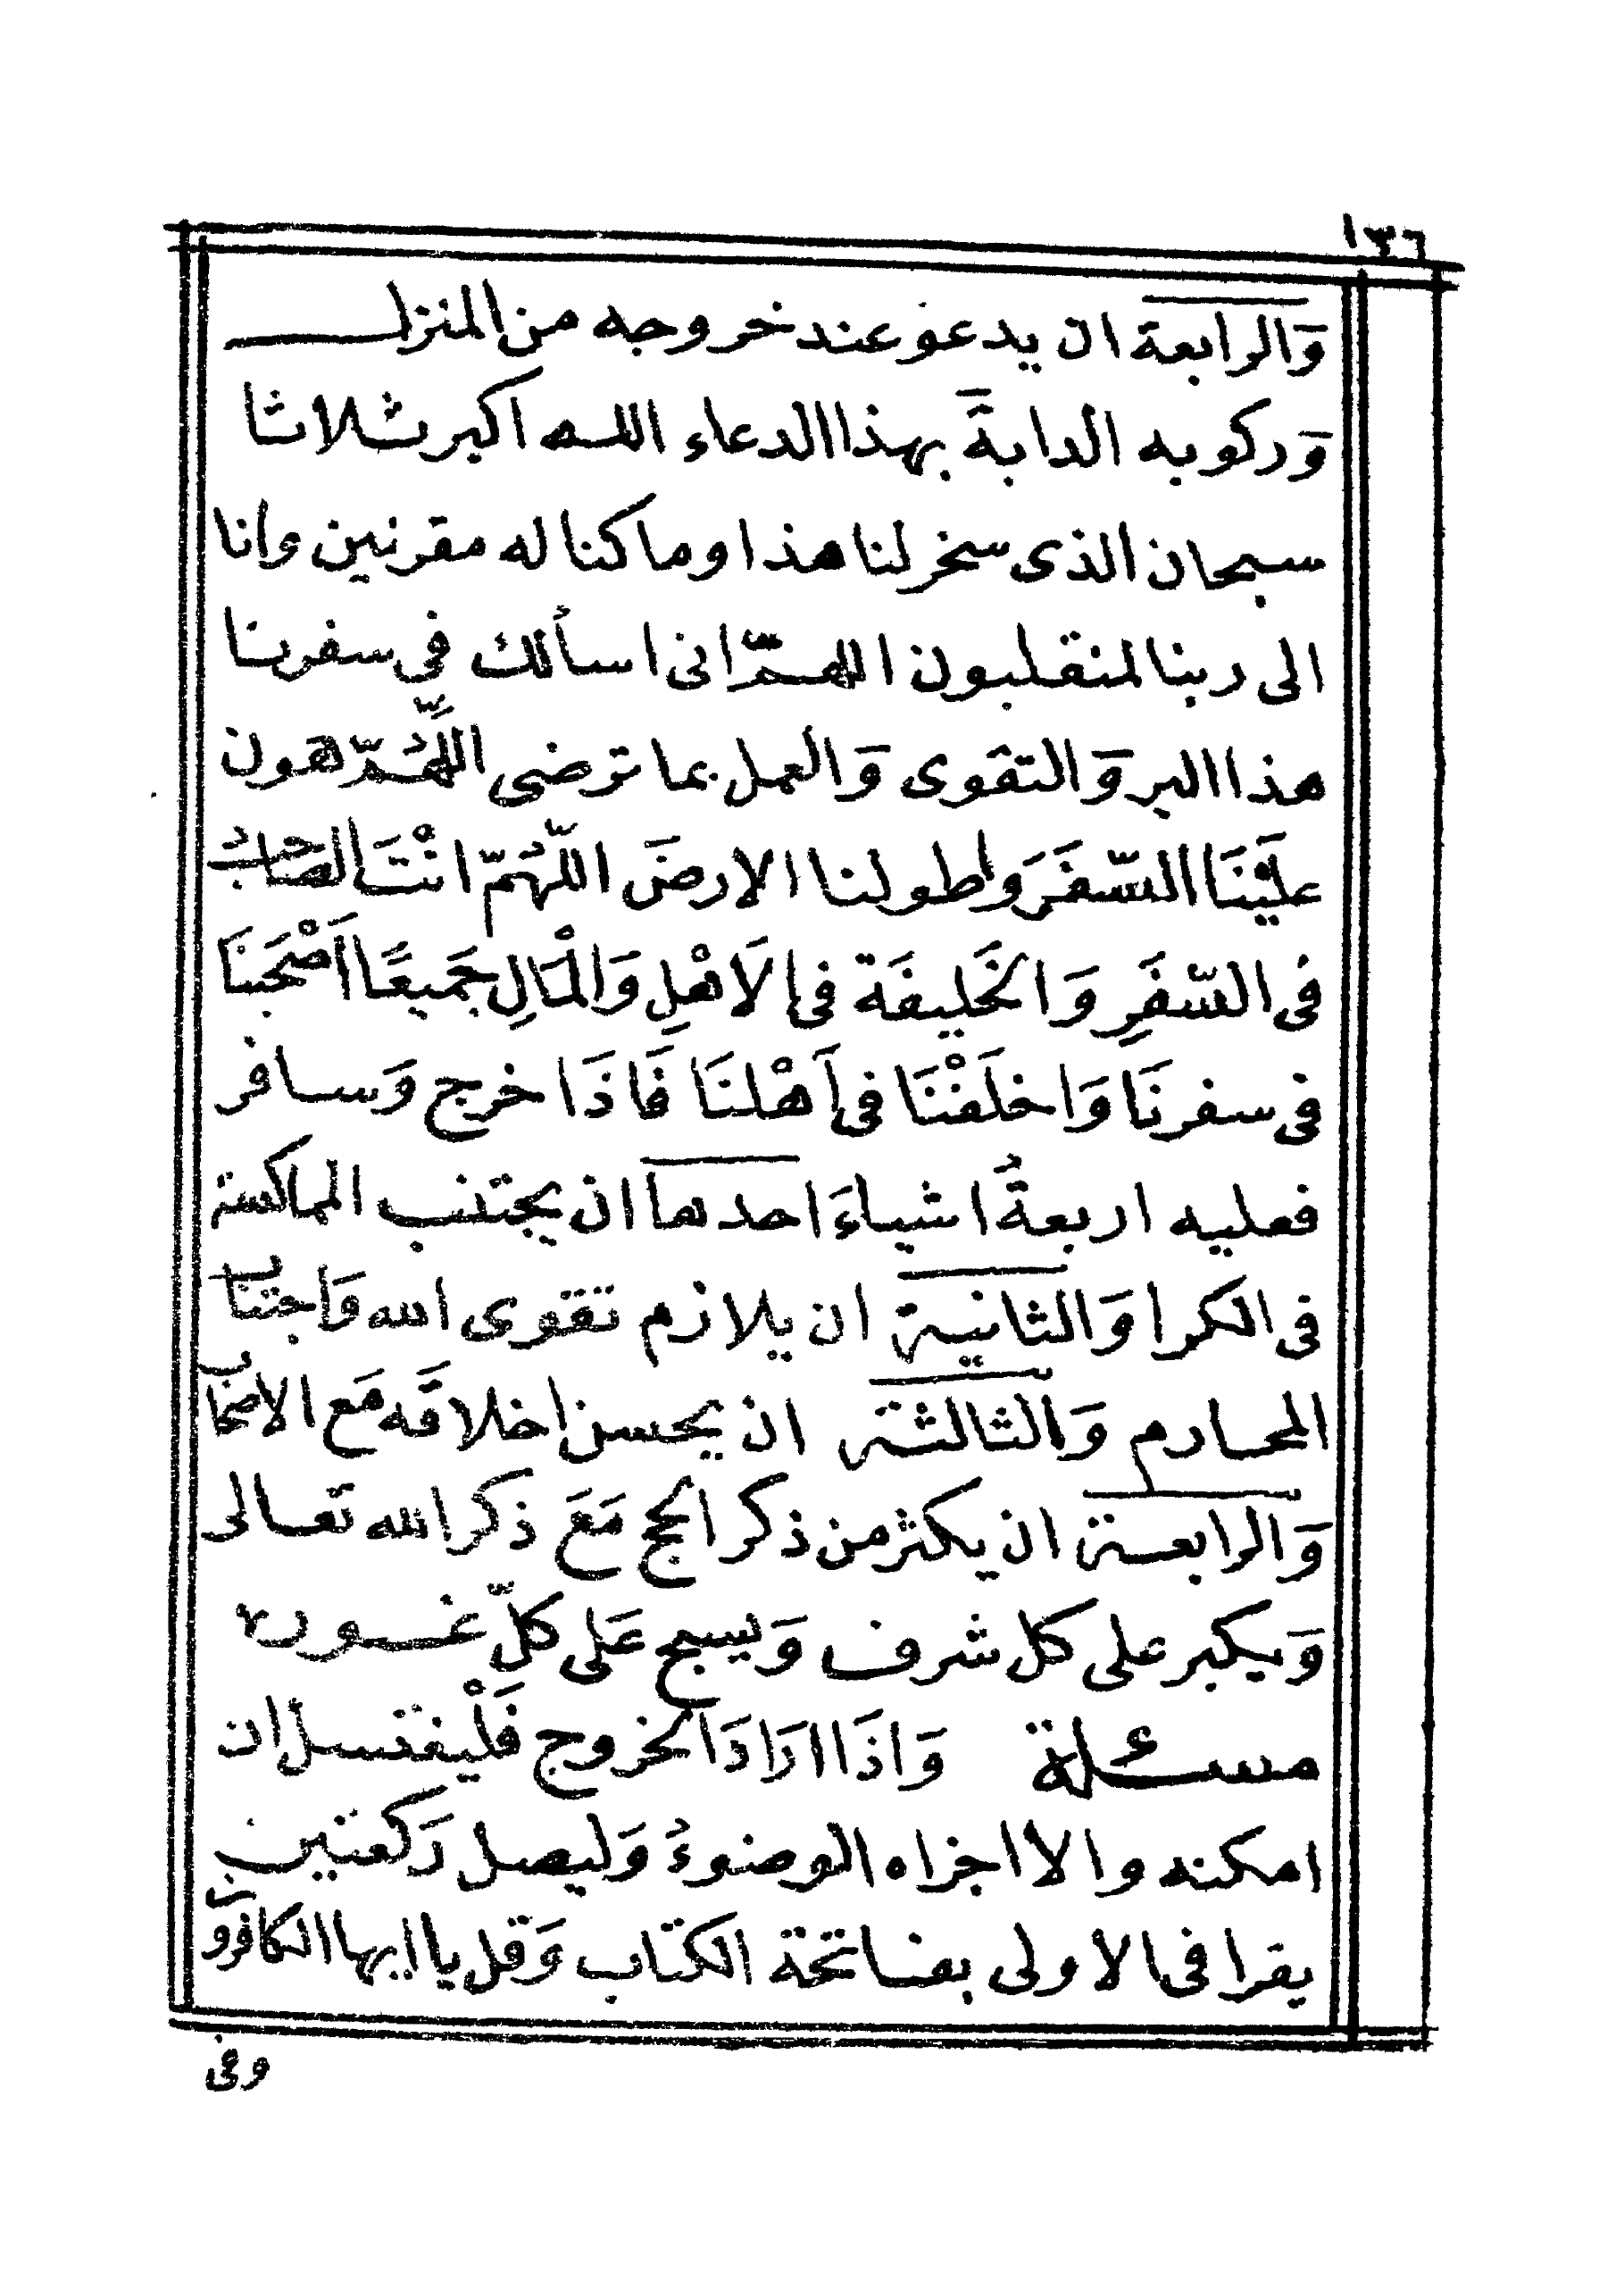 ١٣٦
وَالرابعة ان يدعو عند خروجه من المنزل
وَركوبه الدابةَ بهذا الدعاء الله اكبر ثلاثا
سبحان الذى سخر لنا هذا وما كنا له مقرنين وانا
الى ربنا لمنقلبون اللهمّ انى اسألك فى سفرنا
هذا البر وَالتقوى وَالعمل بما ترضى اللهُمّ هون
عليْنَا السّفَرَ واطو لنا الارضَ اللّهُمّ انْتَ الصَاحبُ
فى السّفَرِ وَالخَليفَة فى الاَهْلِ وَالْمَالِ جَميعًا اَصْحَبنَا
فى سفرنَا وَاخلَفْنَا فى اَهْلنَا فَاذَا خرج وَسافر
فعليه اربعةُ اشياءَ احدها ان يجتنب المماكسة
فى الكرا وَالثانية ان يلازم تقوى الله وَاجتناب
المحارم وَالثالثة ان يحسن اخلاقَه مَع الاصحاب
وَالرابعة ان يكثر من ذكر الحج مَعَ ذكر الله تعالى
وَيكبر على كل شرف وَيسبح عَلى كلّ غور
مسئلة وَاذَا ارَادَ الخروج فَلْيغتسل ان
امكنه والا اجزاه الوضوءُ وَليصل رَكعتين
يقرا فى الاولى بفاتحة الكتاب وَقل يا ايها الكافرون
وفى